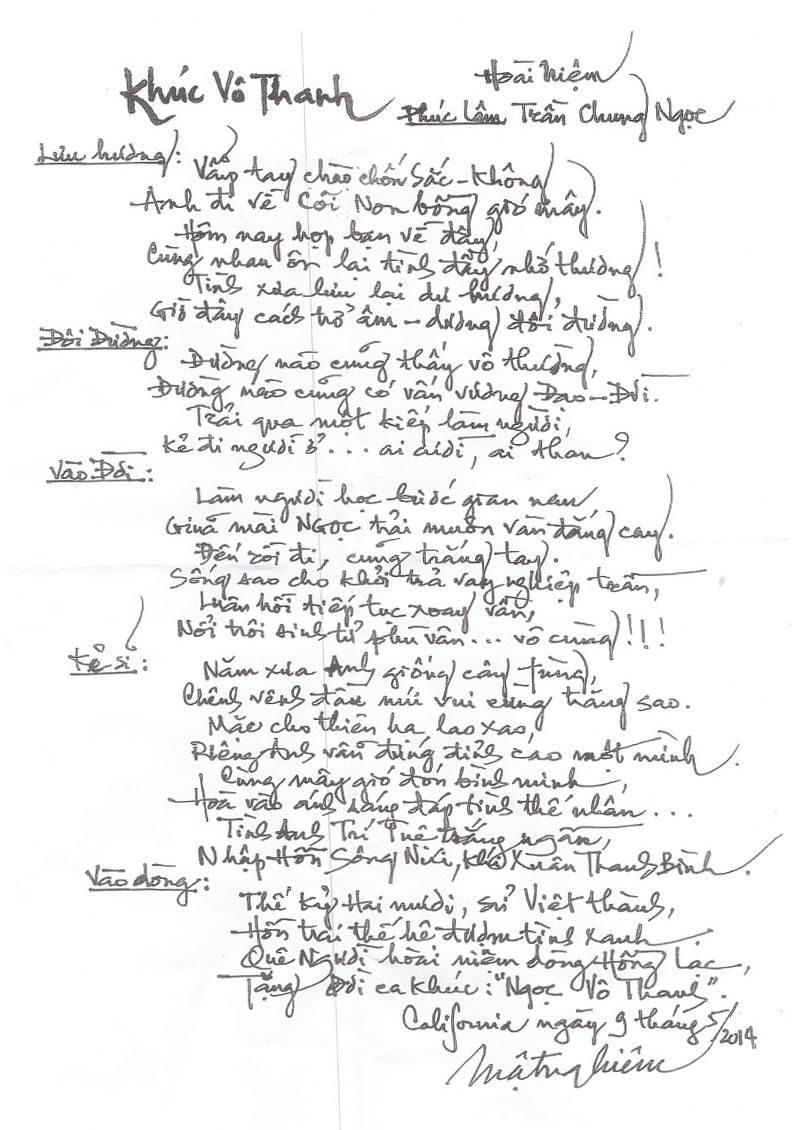 Khúc Vô Thanh
Hoài niệm
Phúc Lâm Trần Chung Ngọc
Lưu hương:
Vẫy tay chào chốn Sắc – Không
Anh đi về Cõi Non bồng gió mây.
Hôm nay họp bạn về đây,
Cùng nhau ôn lại tình đầy nhớ thương!
Tình xưa lưu lại dư hương,
Giờ đây cách trở âm – dương đôi đường.
Đôi Đường:
Đường nào cũng thấy vô thường,
Đường nào cũng có vấn vương Đạo – Đời.
Trải qua một kiếp làm người,
Kẻ đi người ở... ai cười, ai than?
Vào Đời:
Làm người học bước gian nan
Giũa mài NGỌC trải muôn vàn đắng cay.
Đến rồi đi, cũng trắng tay.
Sống sao cho khỏi trả vay nghiệp trần,
Luân hồi tiếp tục xoay vần,
Nổi trôi sinh tử phù vân... vô cùng!!!
Kẻ sĩ:
Năm xưa Anh giống cây tùng,
Chênh vênh đầu núi vui cùng trăng sao.
Mặc cho thiên hạ lao xao,
Riêng Anh vẫn đứng đỉnh cao một mình.
Cùng mây gió đón bình minh,
Hoà vào ánh sáng đáp tình thế nhân...
Tình Anh Trí Tuệ trắng ngần,
Nhập Hồn Sông Núi, Xuân Thanh Bình.
Vào dòng:
Thế kỷ Hai mươi, sử Việt thành,
Hồn trai thế hệ đượm tình xanh.
Quê Người hoài niệm dòng Hồng Lạc,
Tặng Đời ca khúc: "Ngọc Vô Thanh".
California ngày 9 tháng 5/2014
Mật Nghiêm